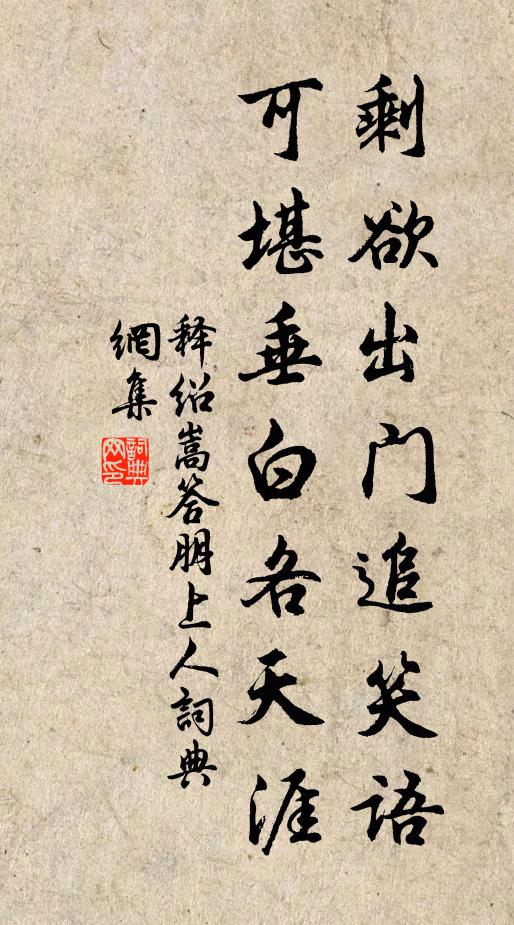 剩欲出门追笑语
可堪垂白各天涯
释绍嵩答朋上人詞典
網集
詞典网印